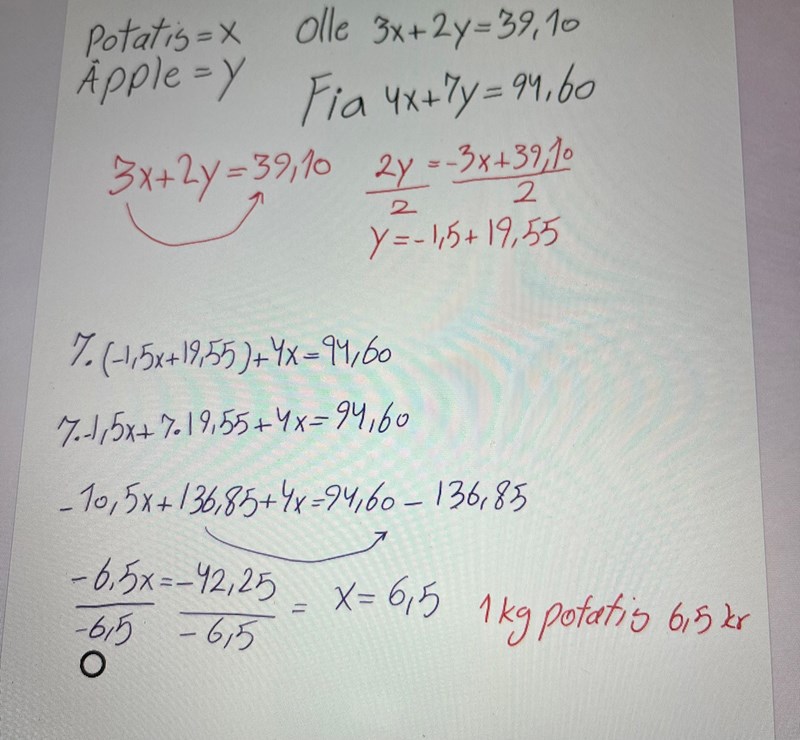 Potatis = x Olle 3x+2y=39,10
Äpple = y Fia 4x+7y=94,60
3x+2y=39,10 2y/2 = -3x+39,10/2
y=-1,5+19,55
7·(-1,5x+19,55)+4x=94,60
7·-1,5x+7·19,55+4x=94,60
-10,5x+136,85+4x=94,60-136,85
-6,5x/-6,5 = -42,25/-6,5 = x=6,5 1kg potatis 6,5 kr